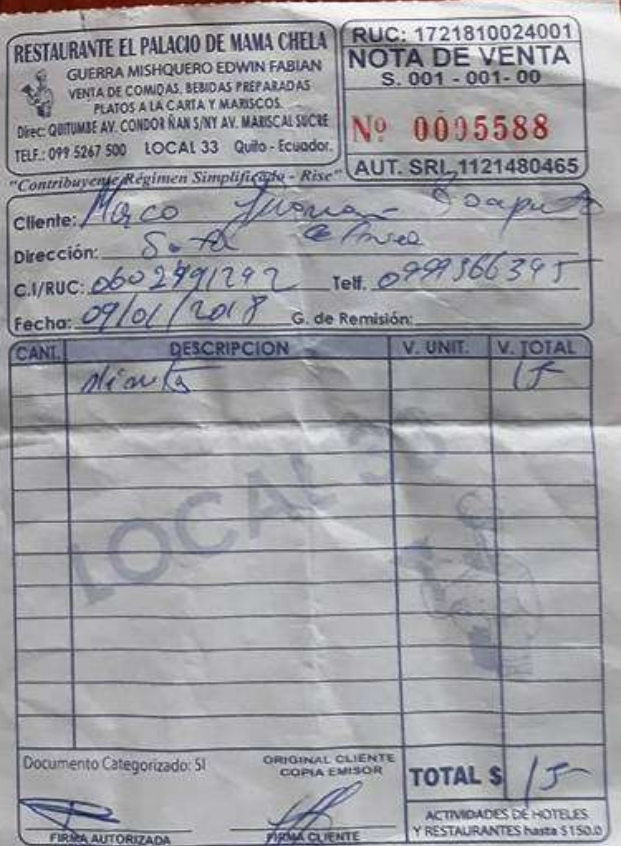 RESTAURANTE EL PALACIO DE MAMA CHELA
GUERRA MISHQUERO EDWIN FABIAN
VENTA DE COMIDAS, BEBIDAS PREPARADAS
PLATOS A LA CARTA Y MARISCOS.
Direc: QUITUMBE AV. CONDOR ÑAN S/N Y AV. MARISCAL SUCRE
TELF.: 099 5267 500 LOCAL 33 Quito - Ecuador.
"Contribuyente Régimen Simplificado - Rise"
RUC: 1721810024001
NOTA DE VENTA
S. 001 - 001- 00
Nº 0005588
AUT. SRI. 1121480465
Cliente: Marco
Dirección:
C.I/RUC: 0602991292 Telf. 0999366395
Fecha: 09/01/2018 G. de Remisión:
CANT. DESCRIPCION V. UNIT. V. TOTAL
15
LOCAL 33
Documento Categorizado: SI
ORIGINAL CLIENTE
COPIA EMISOR
TOTAL $ 15
FIRMA AUTORIZADA
FIRMA CLIENTE
ACTIVIDADES DE HOTELES
Y RESTAURANTES hasta $150.0